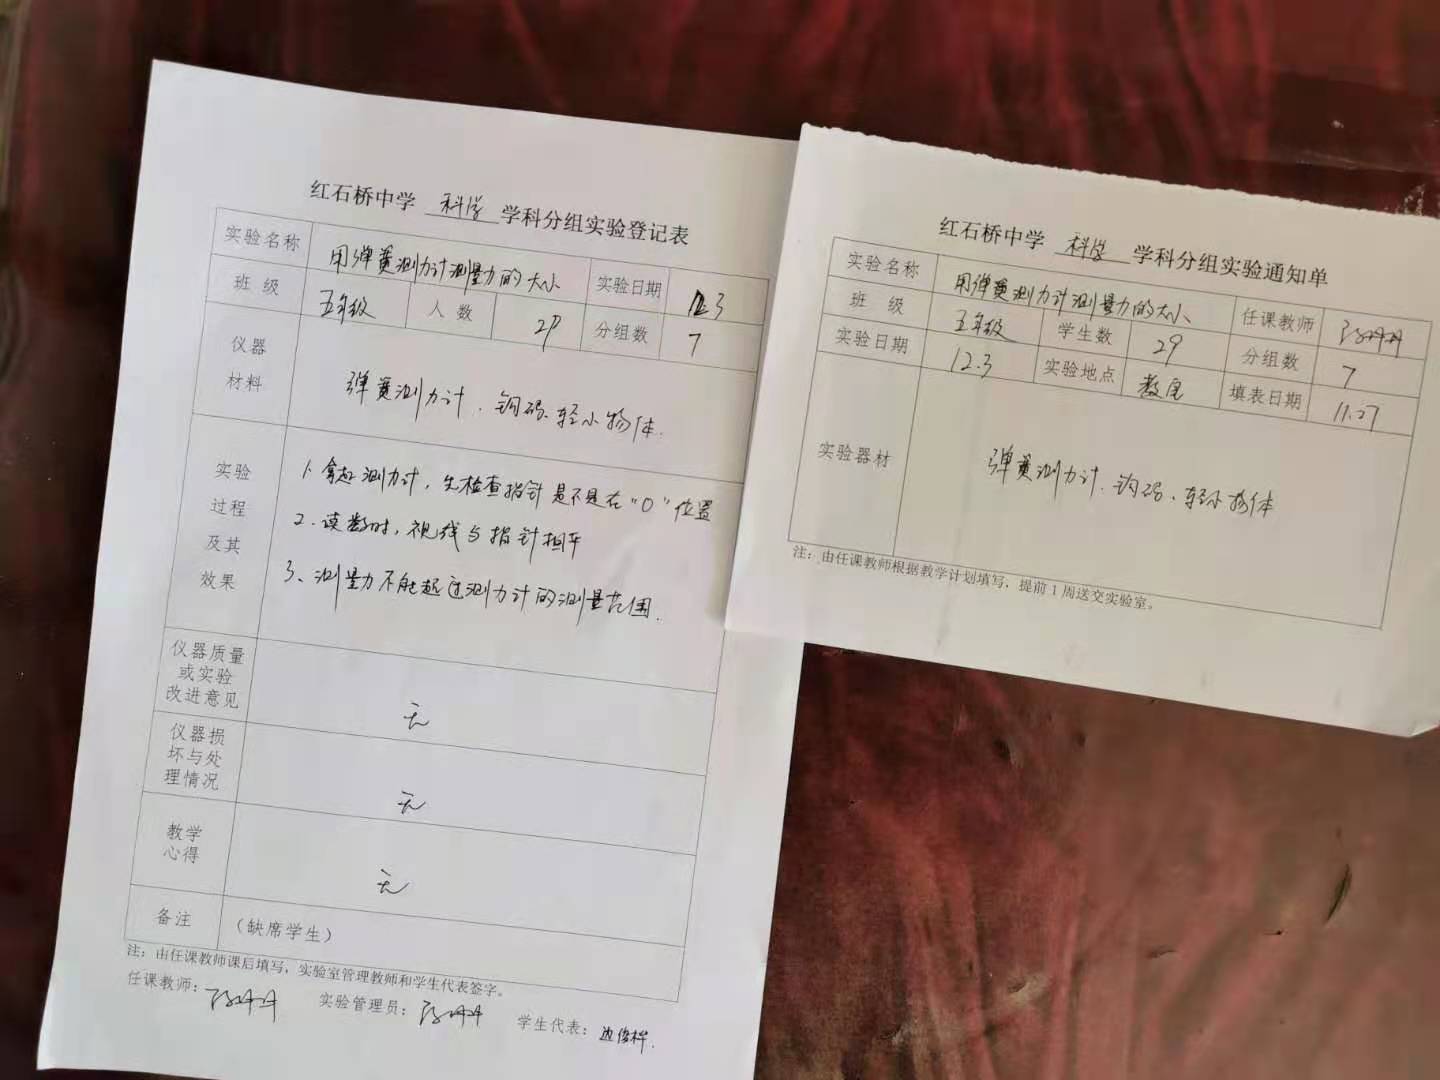 红石桥中学 科学 学科分组实验登记表
实验名称 用弹簧测力计测量力的大小 实验日期 12.3
班 级 五年级 人 数 29 分组数 7
仪器
材料
弹簧测力计、钩码、轻小物体.
实验
过程
及其
效果
1、拿起测力计，先检查指针是不是在“0”位置
2、读数时，视线与指针相平
3、测量力不能超过测力计的测量范围.
仪器质量
或实验
改进意见
无
仪器损
坏与处
理情况
无
教学
心得
无
备注 （缺席学生）
注：由任课教师课后填写，实验室管理教师和学生代表签字。
任课教师： 实验管理员： 学生代表：
红石桥中学 科学 学科分组实验通知单
实验名称 用弹簧测力计测量力的大小 任课教师
班 级 五年级 学生数 29 分组数 7
实验日期 12.3 实验地点 教室 填表日期 11.27
实验器材 弹簧测力计、钩码、轻小物体
注：由任课教师根据教学计划填写，提前1周送交实验室。